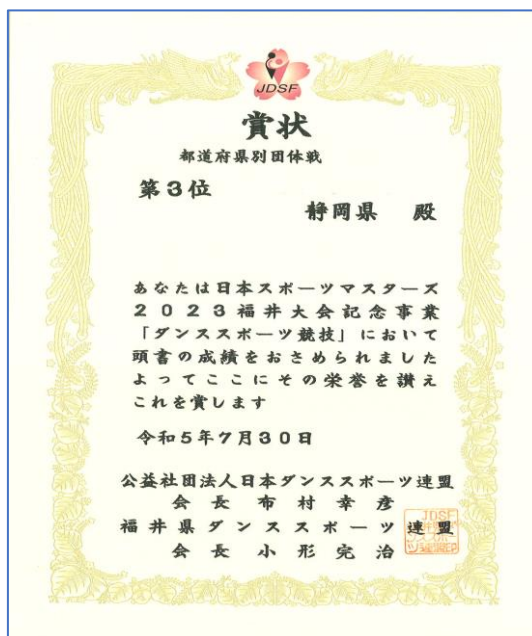 JDSF
賞状
都道府県別団体戦
第3位
静岡県 殿
あなたは日本スポーツマスターズ
2023福井大会記念事業
「ダンススポーツ競技」において
頭書の成績をおさめられました
よってここにその栄誉を讃え
これを賞します
令和5年7月30日
公益社団法人日本ダンススポーツ連盟
会長 布村幸彦
福井県ダンススポーツ連盟
会長 小形完治
JDSF